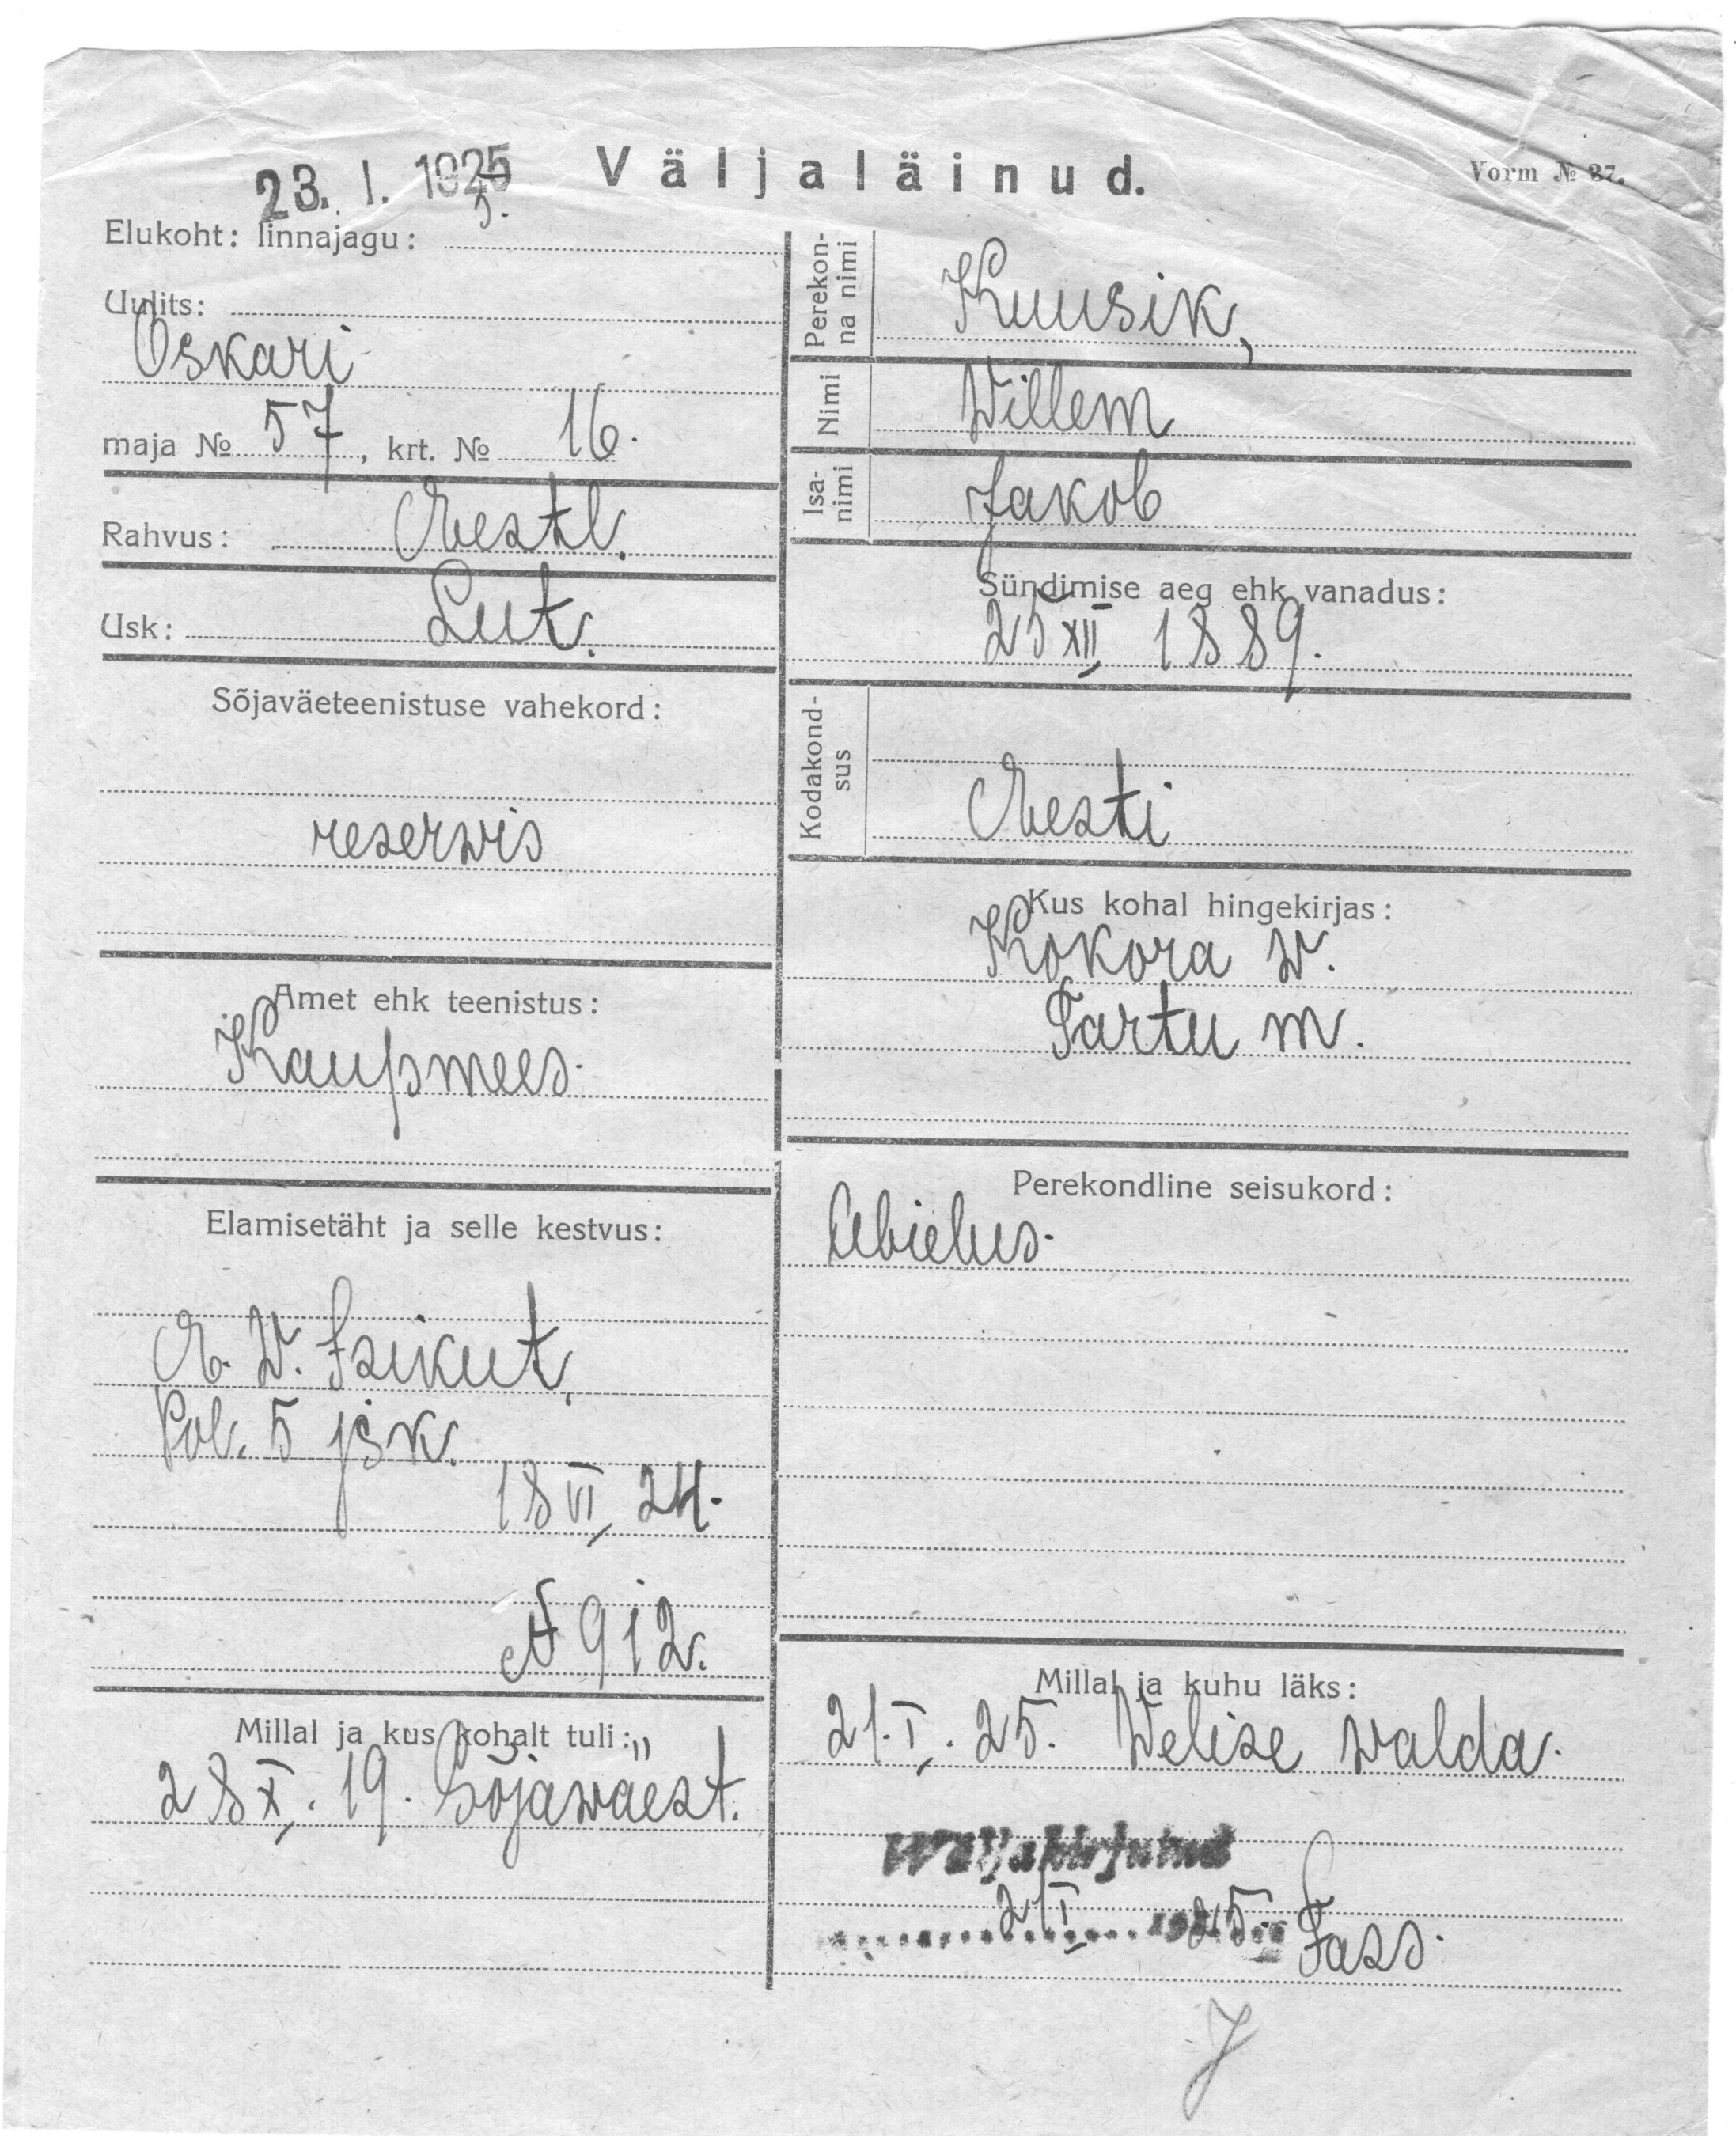 23. I. 1925 Väljaläinud. Vorm № 37.
5.
Elukoht: linnajagu:
Uulits:
Oskari
maja № 57, krt. № 16.
Rahvus: Eestl.
Usk: Lut.
Sõjaväeteenistuse vahekord:
reserwis
Amet ehk teenistus:
Kaupmees.
Elamisetäht ja selle kestvus:
E. W. Isikut.
Pol. 5 jsk.
18 VI 24.
N 912.
Millal ja kus kohalt tuli:
28 X. 19. Sõjawäest.
Perekonna nimi
Kuusik,
Nimi
Willem
Isanimi
Jakob
Sündimise aeg ehk vanadus:
25 XII 1889.
Kodakondsus
Eesti
Kus kohal hingekirjas:
Kokora w.
Tartu m.
Perekondline seisukord:
Abielus.
Millal ja kuhu läks:
21. I. 25. Welise walda.
Wäljakirjutud
21 I 1925 Tass.